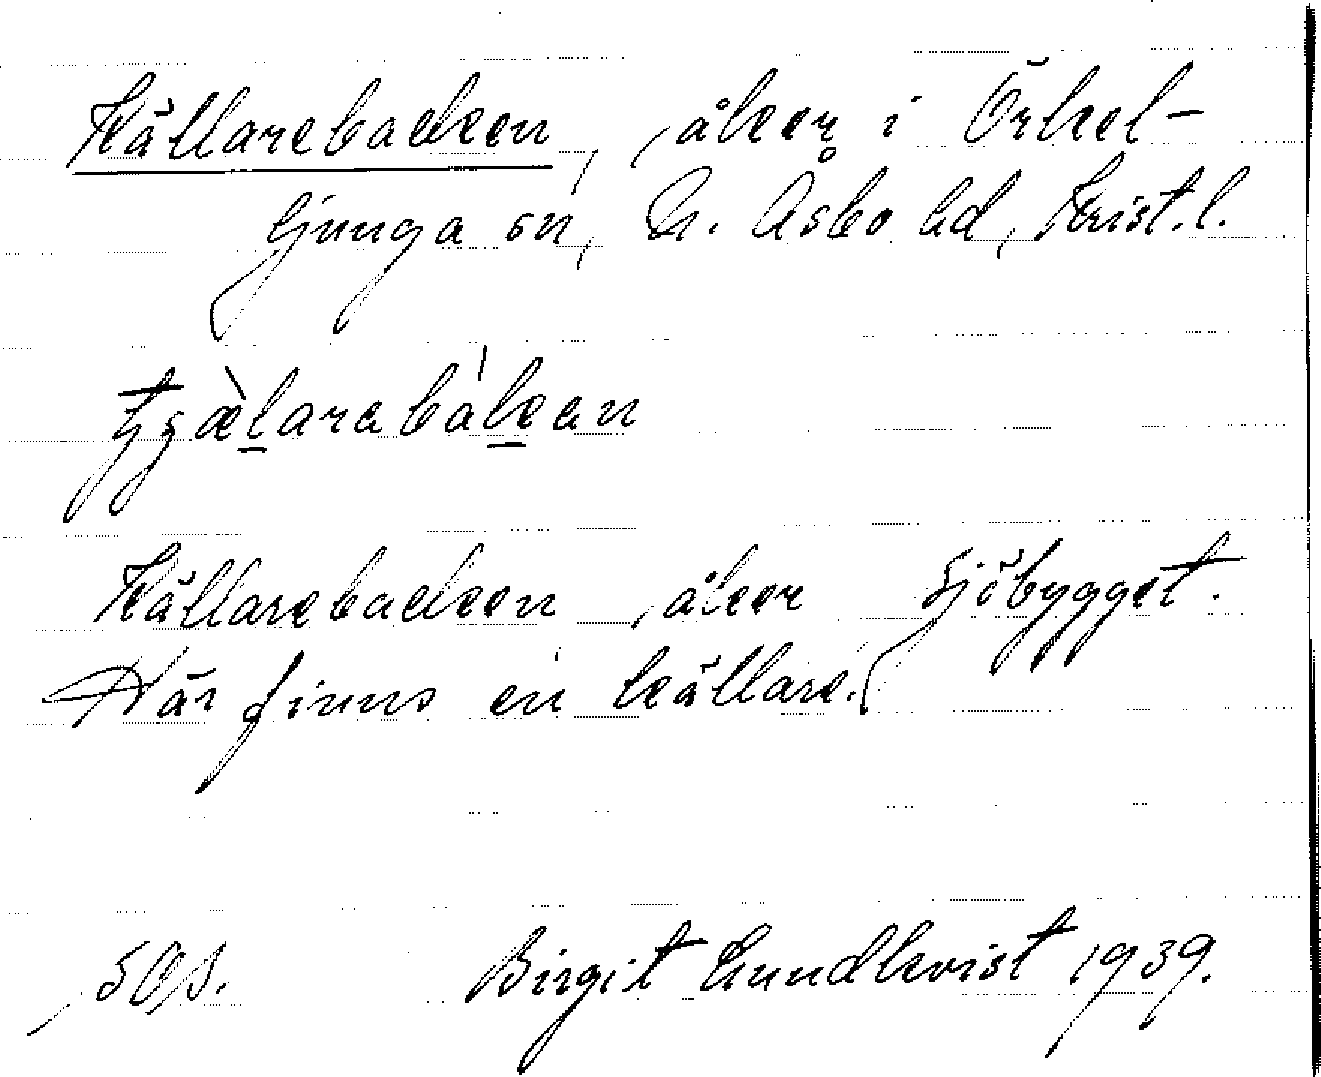 Källarebacken, åker i Örkel-
ljunga sn, N. Åsbo hd, Krist. l.
Källarebacken åker Sjöbygget.
Där finns en källare.
Birgit Lundkvist 1939.